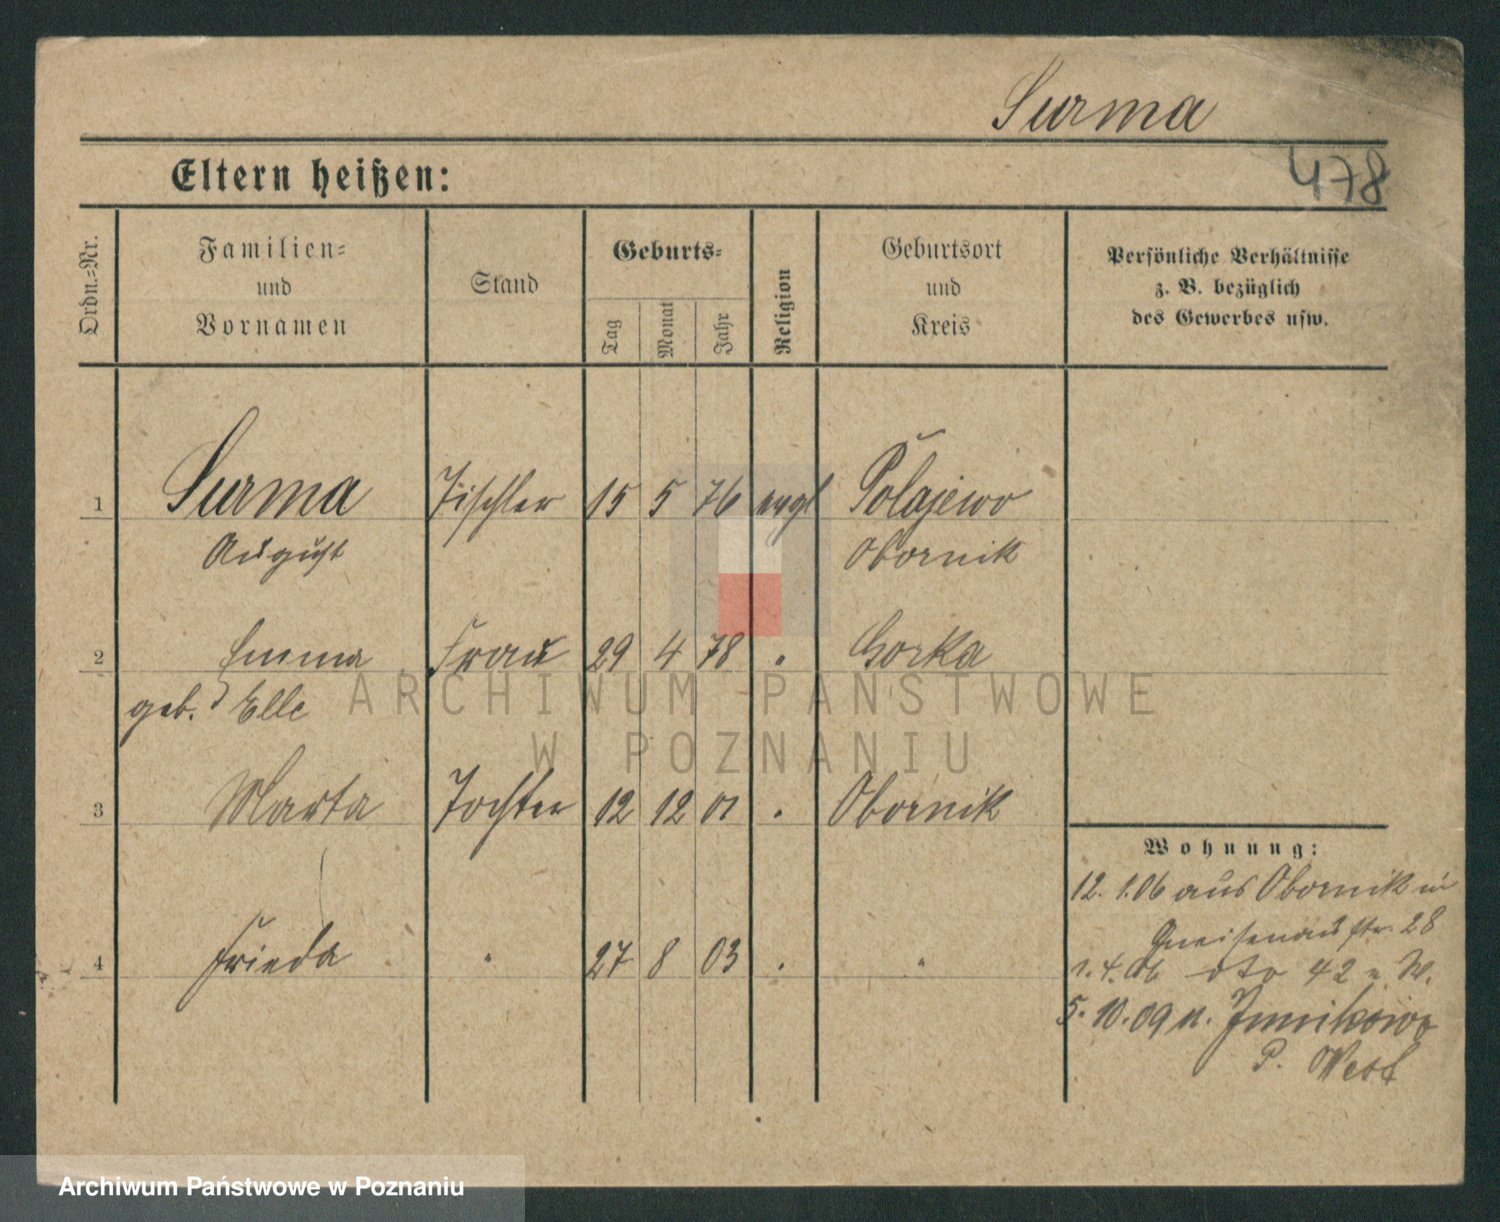 Surma
478
Eltern heißen:
Ordn.=Nr.
Familien=
und
Vornamen
Stand
Geburts=
Tag
Monat
Jahr
Religion
Geburtsort
und
Kreis
Persönliche Verhältnisse
z. B. bezüglich
des Gewerbes usw.
1 Surma Tischler 15 5 76 evgl Polajewo
August Obornik
2 Emma Frau 29 4 78 " Gorka
geb. Elle
3 Marta Tochter 12 12 01 " Obornik
4 Frieda " 27 8 03 " "
Wohnung:
12. 1.06 aus Obornik in
Gneisenaustr. 28
1. 4. 06 dto 42 n. W.
5. 10. 09 n. Junikowo
P. West
ARCHIWUM PAŃSTWOWE
W POZNANIU
Archiwum Państwowe w Poznaniu